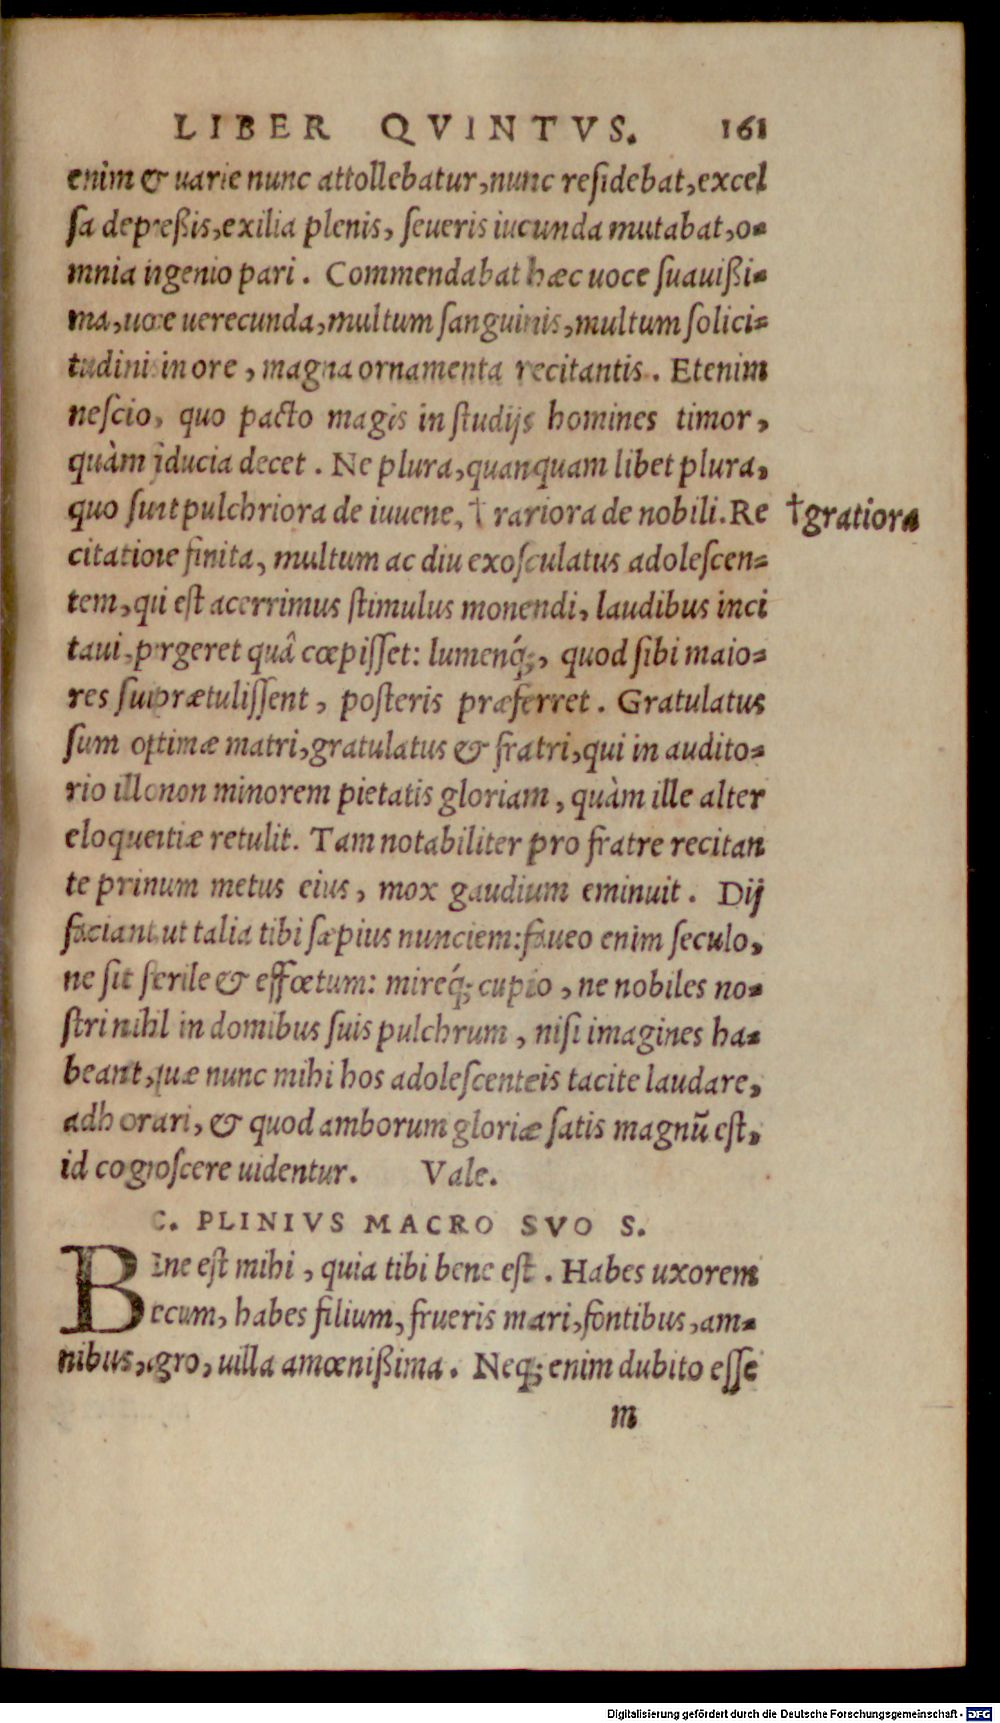 LIBER QVINTVS. 161
enim & uarie nunc attollebatur, nunc residebat, excel
sa depreßis, exilia plenis, seueris iucunda mutabat, o-
mnia ingenio pari. Commendabat hæc uoce suauißi-
ma, uoce uerecunda, multum sanguinis, multum solici-
tudinis in ore, magna ornamenta recitantis. Etenim
nescio, quo pacto magis in studijs homines timor,
quàm fiducia decet. Ne plura, quanquam libet plura,
quo sunt pulchriora de iuuene, † rariora de nobili. Re
†gratiora
citatione finita, multum ac diu exosculatus adolescen-
tem, qui est acerrimus stimulus monendi, laudibus inci
taui, pergeret quâ cœpisset: lumenq́;, quod sibi maio-
res sui prætulissent, posteris præferret. Gratulatus
sum optimæ matri, gratulatus & fratri, qui in audito-
rio illo non minorem pietatis gloriam, quàm ille alter
eloquentiæ retulit. Tam notabiliter pro fratre recitan
te primum metus eius, mox gaudium eminuit. Dij
faciant ut talia tibi sæpius nunciem: faueo enim seculo,
ne sit sterile & effœtum: mireq́; cupio, ne nobiles no-
stri nihil in domibus suis pulchrum, nisi imagines ha-
beant, quæ nunc mihi hos adolescenteis tacite laudare,
adhortari, & quod amborum gloriæ satis magnū est,
id cognoscere uidentur. Vale.
C. PLINIVS MACRO SVO S.
BEne est mihi, quia tibi bene est. Habes uxorem
tecum, habes filium, frueris mari, fontibus, am-
nibus, agro, uilla amœnißima. Neq; enim dubito esse
m
Digitalisierung gefördert durch die Deutsche Forschungsgemeinschaft - DFG